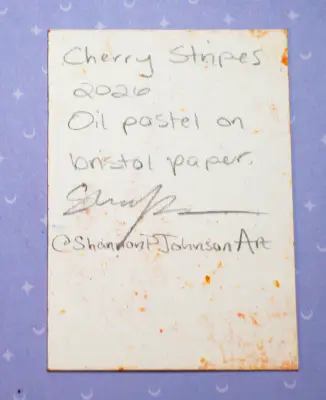 Cherry Stripes
2026
Oil pastel on
bristol paper.
@ShannonPJohnsonArt